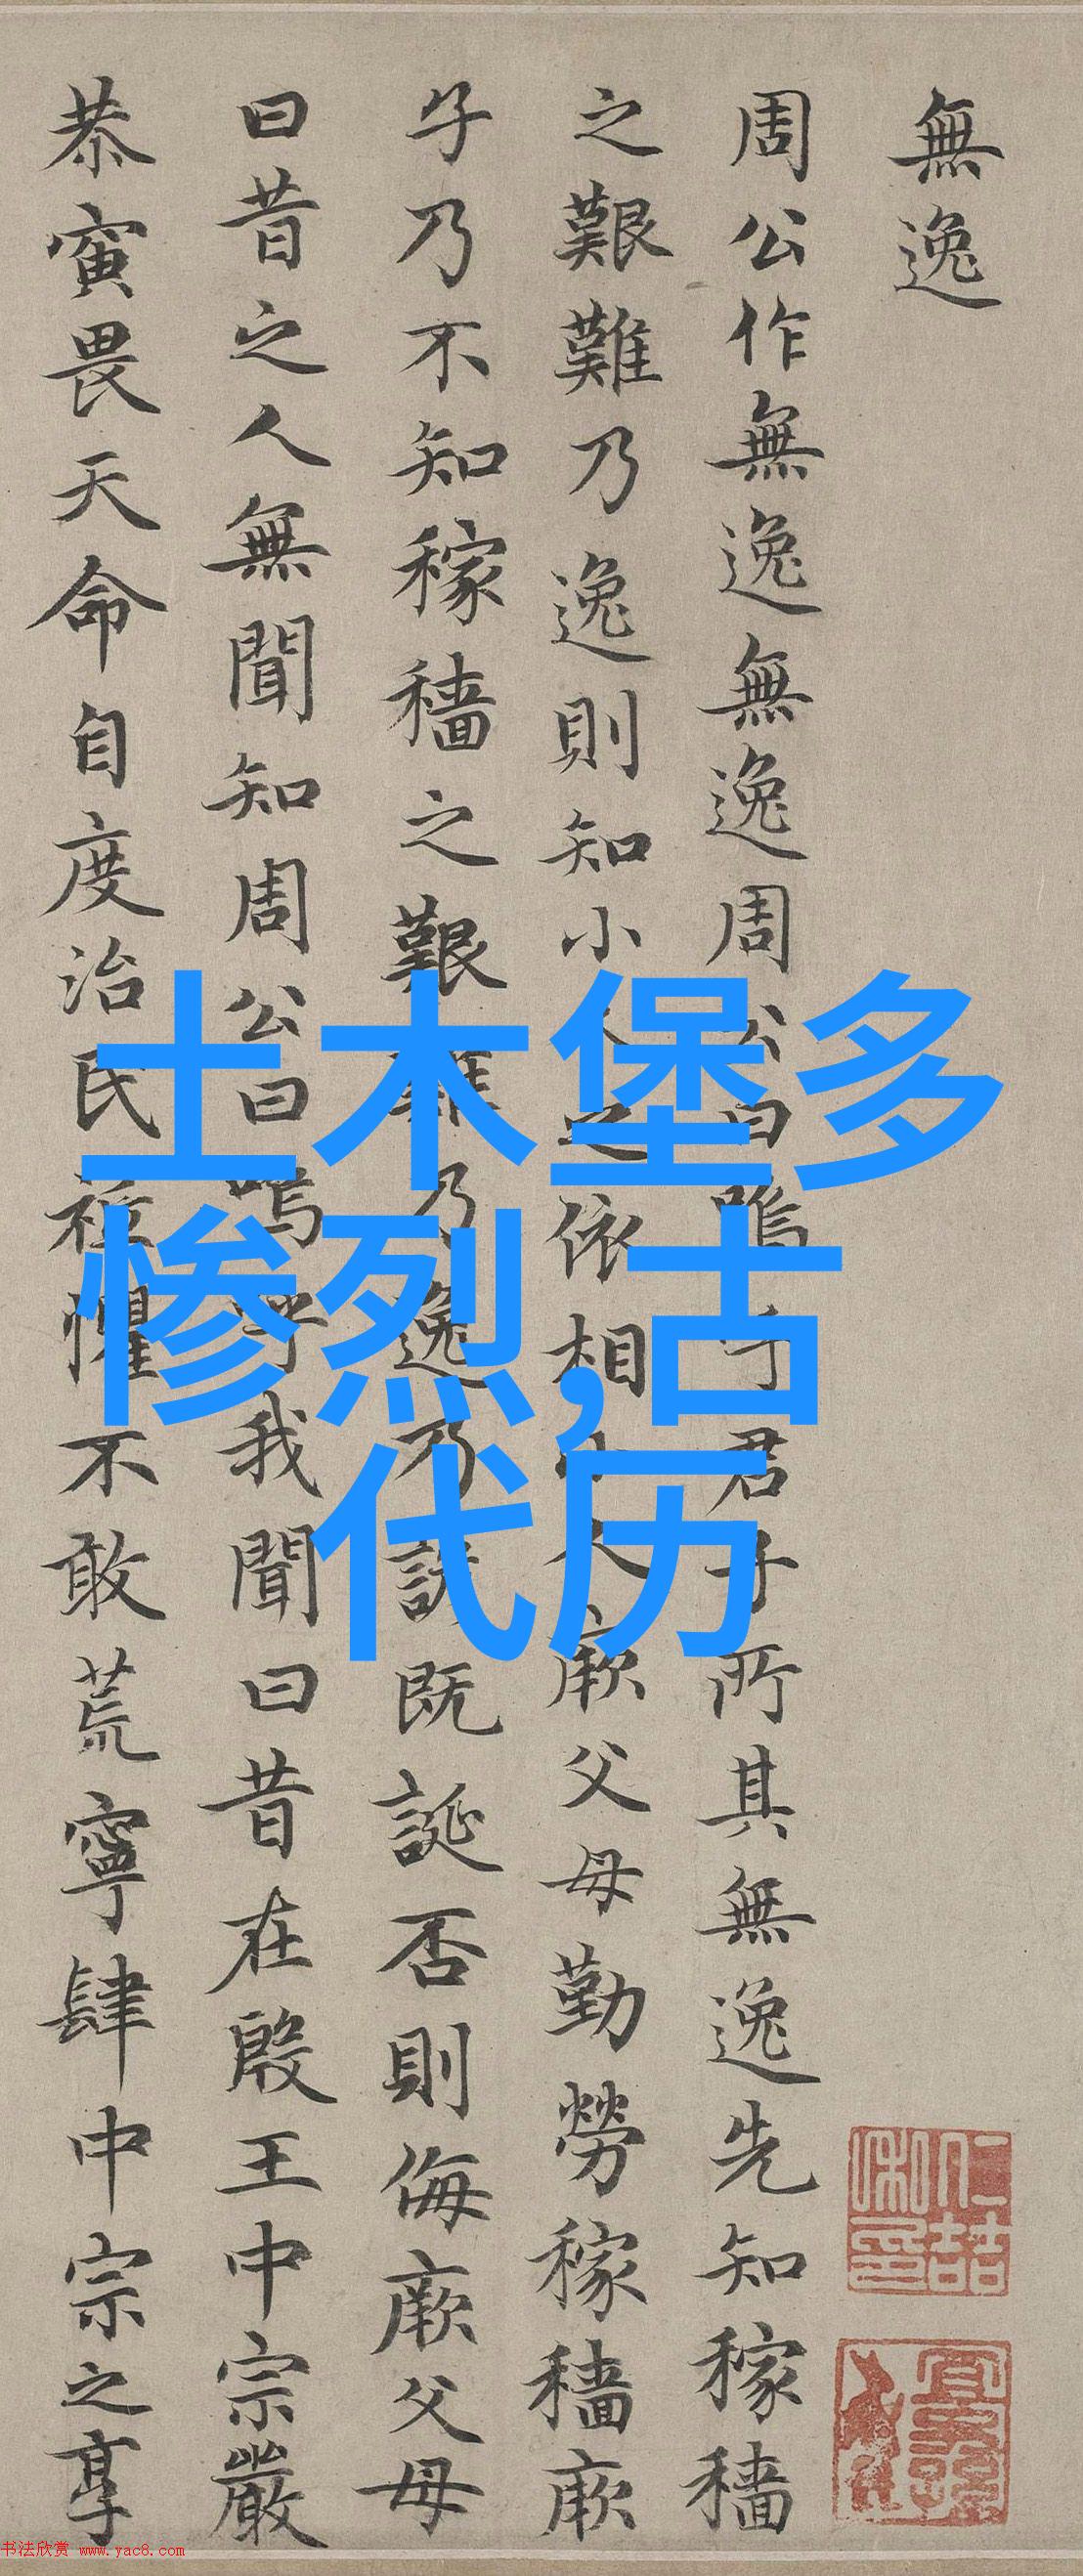 無逸
周公作無逸無逸周公曰嗚乎君子所其無逸先知稼穡
之艱難乃逸則知小人之依相小人厥父母勤勞稼穡厥
子乃不知稼穡之艱難乃逸乃諺既誕否則侮厥父母
曰昔之人無聞知周公曰嗚乎我聞曰昔在殷王中宗嚴
恭寅畏天命自度治民祗懼不敢荒寧肆中宗之享
土木堡多
惨烈,古
代历
书法欣赏 www.yac8.com